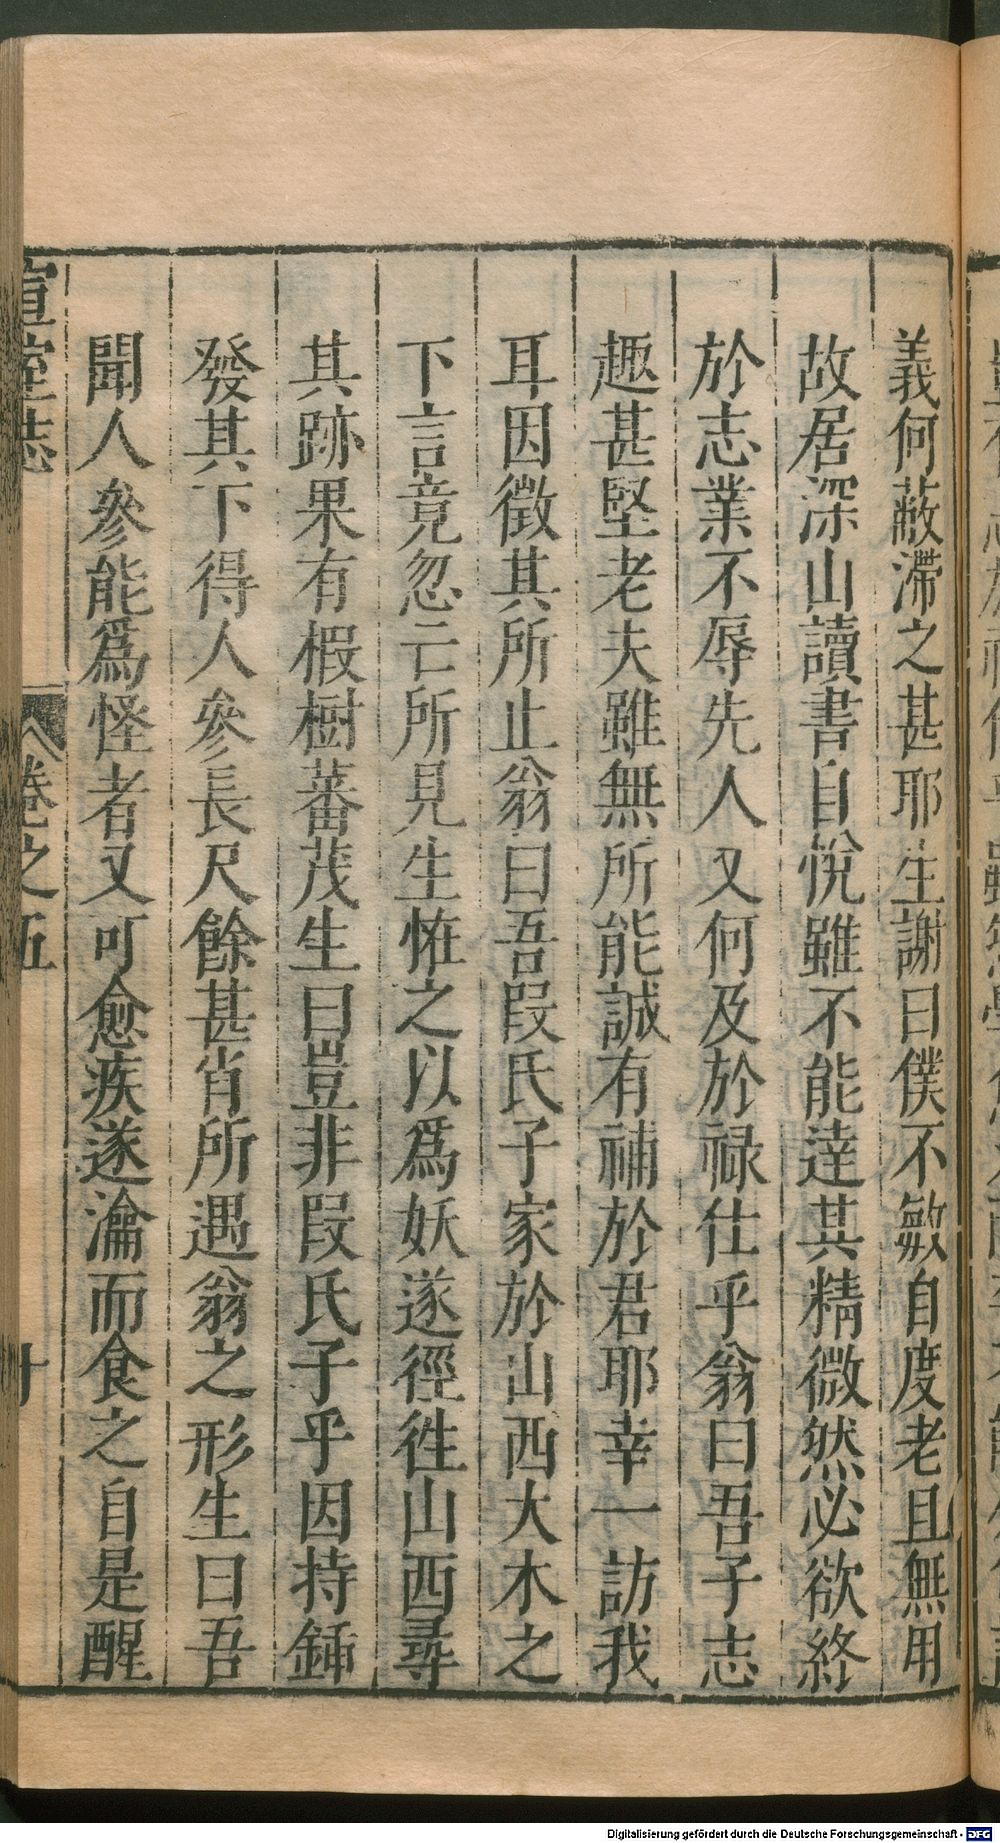 義何蔽滯之甚耶生謝曰僕不敏自度老且無用
故居深山讀書自悅雖不能達其精微然必欲終
於志業不辱先人又何及於祿仕乎翁曰吾子志
趣甚堅老夫雖無所能誠有補於君耶幸一訪我
耳因徵其所止翁曰吾段氏子家於山西大木之
下言竟忽亡所見生恠之以爲妖遂徑徃山西尋
其跡果有椵樹蕃茂生曰豈非段氏子乎因持鍤
發其下得人參長尺餘甚肖所遇翁之形生曰吾
聞人參能爲怪者又可愈疾遂瀹而食之自是醒
宣室志 卷之五 十
Digitalisierung gefördert durch die Deutsche Forschungsgemeinschaft - DFG